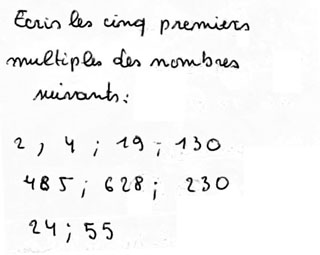 Écris les cinq premiers
multiples des nombres
suivants :
2 , 4 ; 19 ; 130
485 ; 628 ; 230
24 ; 55